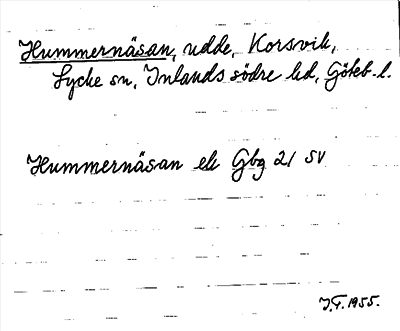 Hummernäsan, udde, Korsvik,
Lycke sn, Inlands södre hd, Göteb. l.
Hummernäsan ek Gbg 21 SV
J.F. 1955.